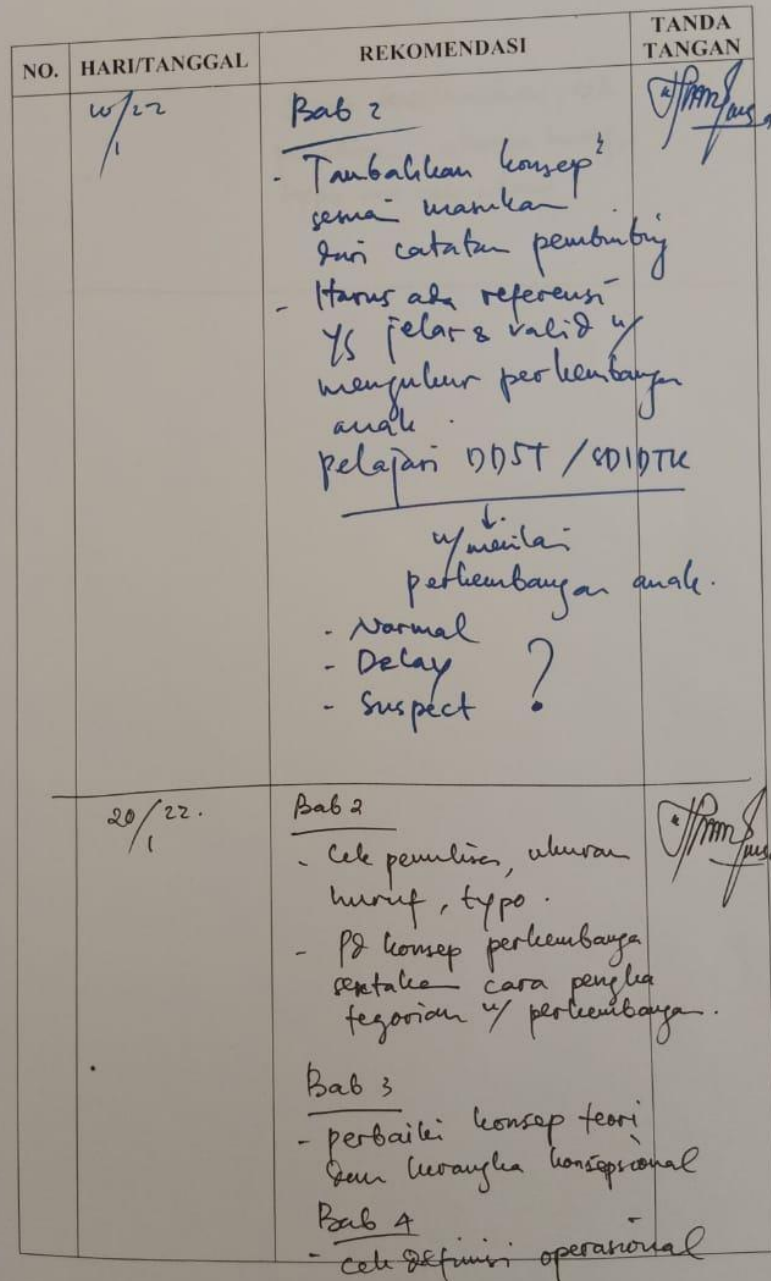 NO. HARI/TANGGAL REKOMENDASI TANDA TANGAN
10/22
1
Bab 2
- Tambahkan konsep²
sesuai masukan
dari catatan pembimbing
- Harus ada referensi
yg jelas & valid u/
mengukur perkembangan
anak.
pelajari DDST / SDIDTK
↓
u/ menilai
perkembangan anak.
- Normal
- Delay ?
- Suspect
20/22.
1
Bab 2
- Cek penulisan, ukuran
huruf, typo.
- Pd konsep perkembangan
sertakan cara pengka
tegorian u/ perkembangan.
Bab 3
- perbaiki konsep teori
dan kerangka konsepsional
Bab 4
- cek definisi operasional